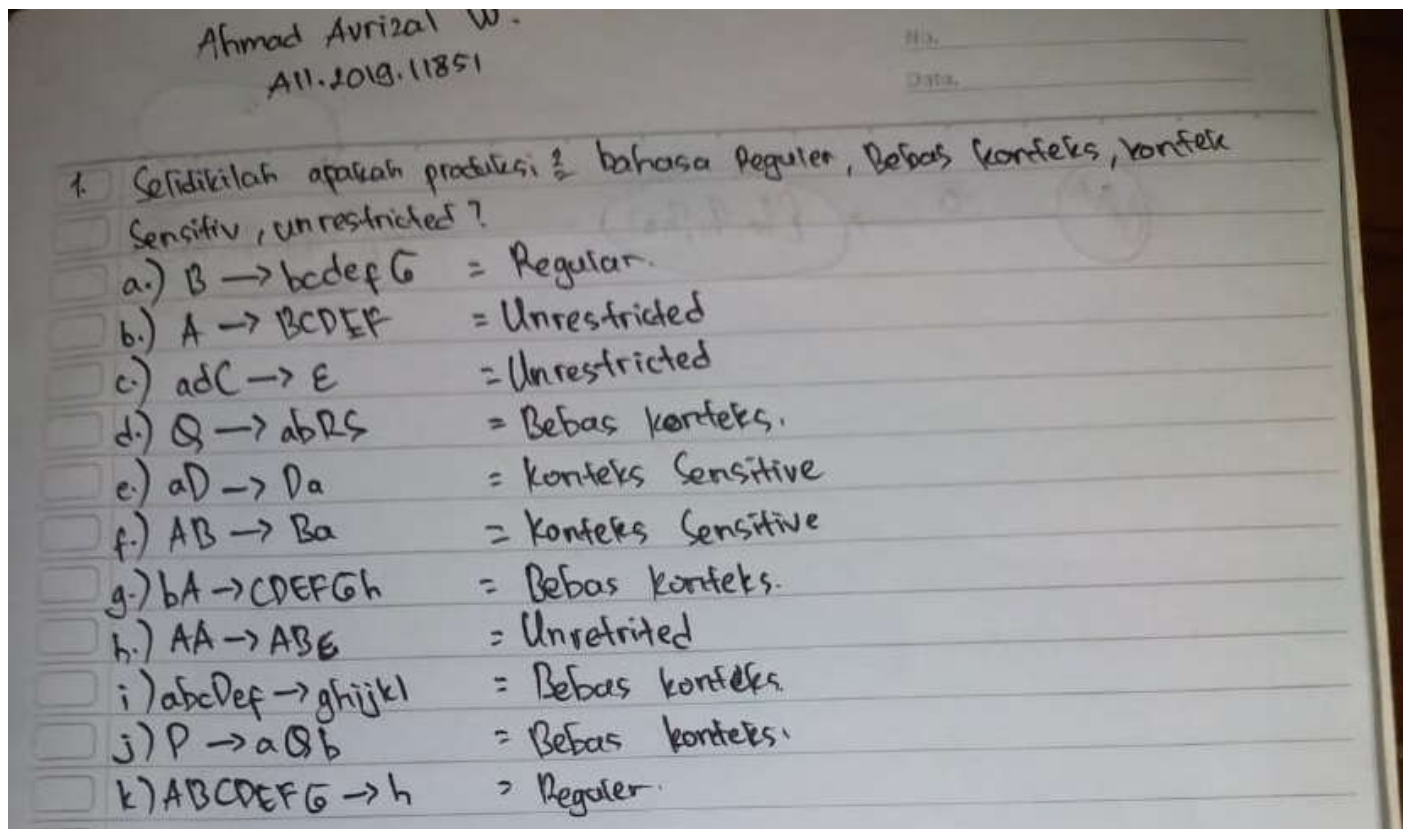 Ahmad Avrizal W.
A11.2019.11851
No.
Date.
1. Selidikilah apakah produksi2 bahasa Reguler, Bebas konteks, kontek
Sensitiv, unrestricted?
a.) B → bcdefG = Regular.
b.) A → BCDEF = Unrestricted
c.) adC → ε = Unrestricted
d.) Q → abRS = Bebas konteks.
e.) aD → Da = Konteks Sensitive
f.) AB → Ba = Konteks Sensitive
g.) bA → CDEFGh = Bebas konteks.
h.) AA → ABε = Unretrited
i) abcDef → ghijkl = Bebas konteks
j) P → aQb = Bebas konteks.
k) ABCDEFG → h = Reguler.